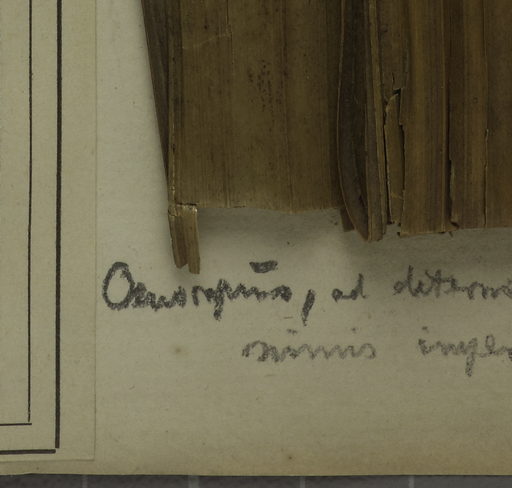 Oenocarpus, ad determ
nimis imper